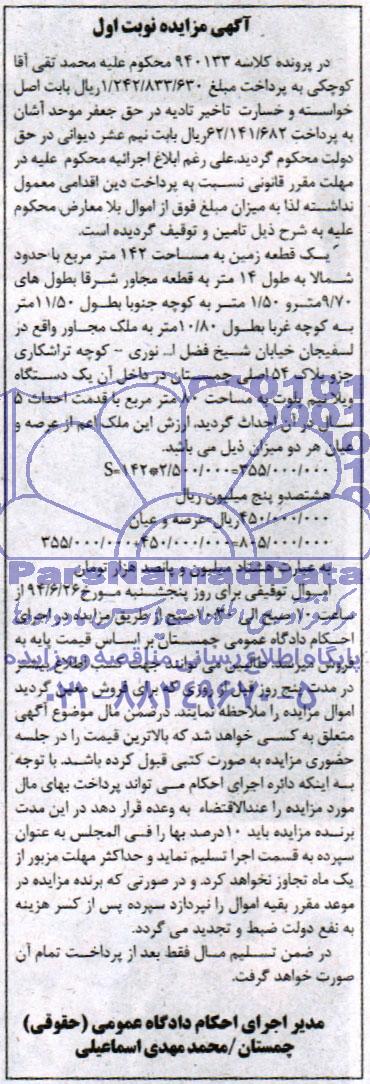 آگهی مزایده نوبت اول
در پرونده کلاسه ۹۴۰۱۳۳ محکوم علیه محمد تقی آقا
کوچکی به پرداخت مبلغ ۱/۲۴۲/۸۳۳/۶۳۰ریال بابت اصل
خواسته و خسارت تاخیر تادیه در حق جعفر موحد آشان
به پرداخت ۶۲/۱۴۱/۶۸۲ریال بابت نیم عشر دیوانی در حق
دولت محکوم گردید.علی رغم ابلاغ اجرائیه محکوم علیه در
مهلت مقرر قانونی نسبت به پرداخت دین اقدامی معمول
نداشته لذا به میزان مبلغ فوق از اموال بلا معارض محکوم
علیه به شرح ذیل تامین و توقیف گردیده است.
یک قطعه زمین به مساحت ۱۴۲ متر مربع با حدود
شمالا به طول ۱۴ متر به قطعه مجاور شرقا بطول های
۹/۷۰مترو ۱/۵۰ متر به کوچه جنوبا بطول ۱۱/۵۰متر
به کوچه غربا بطول ۱۰/۸۰متر به ملک مجاور واقع در
لسفیجان خیابان شیخ فضل ا... نوری - کوچه تراشکاری
جزو پلاک ۵۴اصلی چمستان در داخل آن یک دستگاه
ویلا نیم پلوت به مساحت ۸۰ متر مربع با قدمت احداث ۵
سال در آن احداث گردید. ارزش این ملک اعم از عرصه و
عیان هر دو میزان ذیل می باشد.
S=۱۴۲*۲/۵۰۰/۰۰۰=۳۵۵/۰۰۰/۰۰۰
هشتصدو پنج میلیون ریال
۴۵۰/۰۰۰/۰۰۰ریال-عرصه و عیان
۳۵۵/۰۰۰/۰۰۰+۴۵۰/۰۰۰/۰۰۰=۸۰۵/۰۰۰/۰۰۰
به عبارت هشتاد میلیون و پانصد هزار تومان
اموال توقیفی برای روز پنجشنبه مورخ ۹۴/۶/۲۶ از
ساعت ۱۰ صبح الی ۱۰:۳۰صبح از طریق مزایده در اجرای
احکام دادگاه عمومی چمستان بر اساس قیمت پایه به
فروش میرسد طالبین می توانند جهت کسب اطلاع بیشتر
در مدت پنج روز قبل از روزی که برای فروش معین گردید
اموال مزایده را ملاحظه نمایند. درضمن مال موضوع آگهی
متعلق به کسی خواهد شد که بالاترین قیمت را در جلسه
حضوری مزایده به صورت کتبی قبول کرده باشد. با توجه
به اینکه دائره اجرای احکام می تواند پرداخت بهای مال
مورد مزایده را عندالاقتضاء به وعده قرار دهد در این مدت
برنده مزایده باید ۱۰درصد بها را فی المجلس به عنوان
سپرده به قسمت اجرا تسلیم نماید و حداکثر مهلت مزبور از
یک ماه تجاوز نخواهد کرد. و در صورتی که برنده مزایده در
موعد مقرر بقیه اموال را نپردازد سپرده پس از کسر هزینه
به نفع دولت ضبط و تجدید می گردد.
در ضمن تسلیم مال فقط بعد از پرداخت تمام آن
صورت خواهد گرفت.
مدیر اجرای احکام دادگاه عمومی (حقوقی)
چمستان /محمد مهدی اسماعیلی
ParsNamadData
پایگاه اطلاع رسانی مناقصه و مزایده
۰۲۱-۸۸۳۴۹۶۷۰-۵